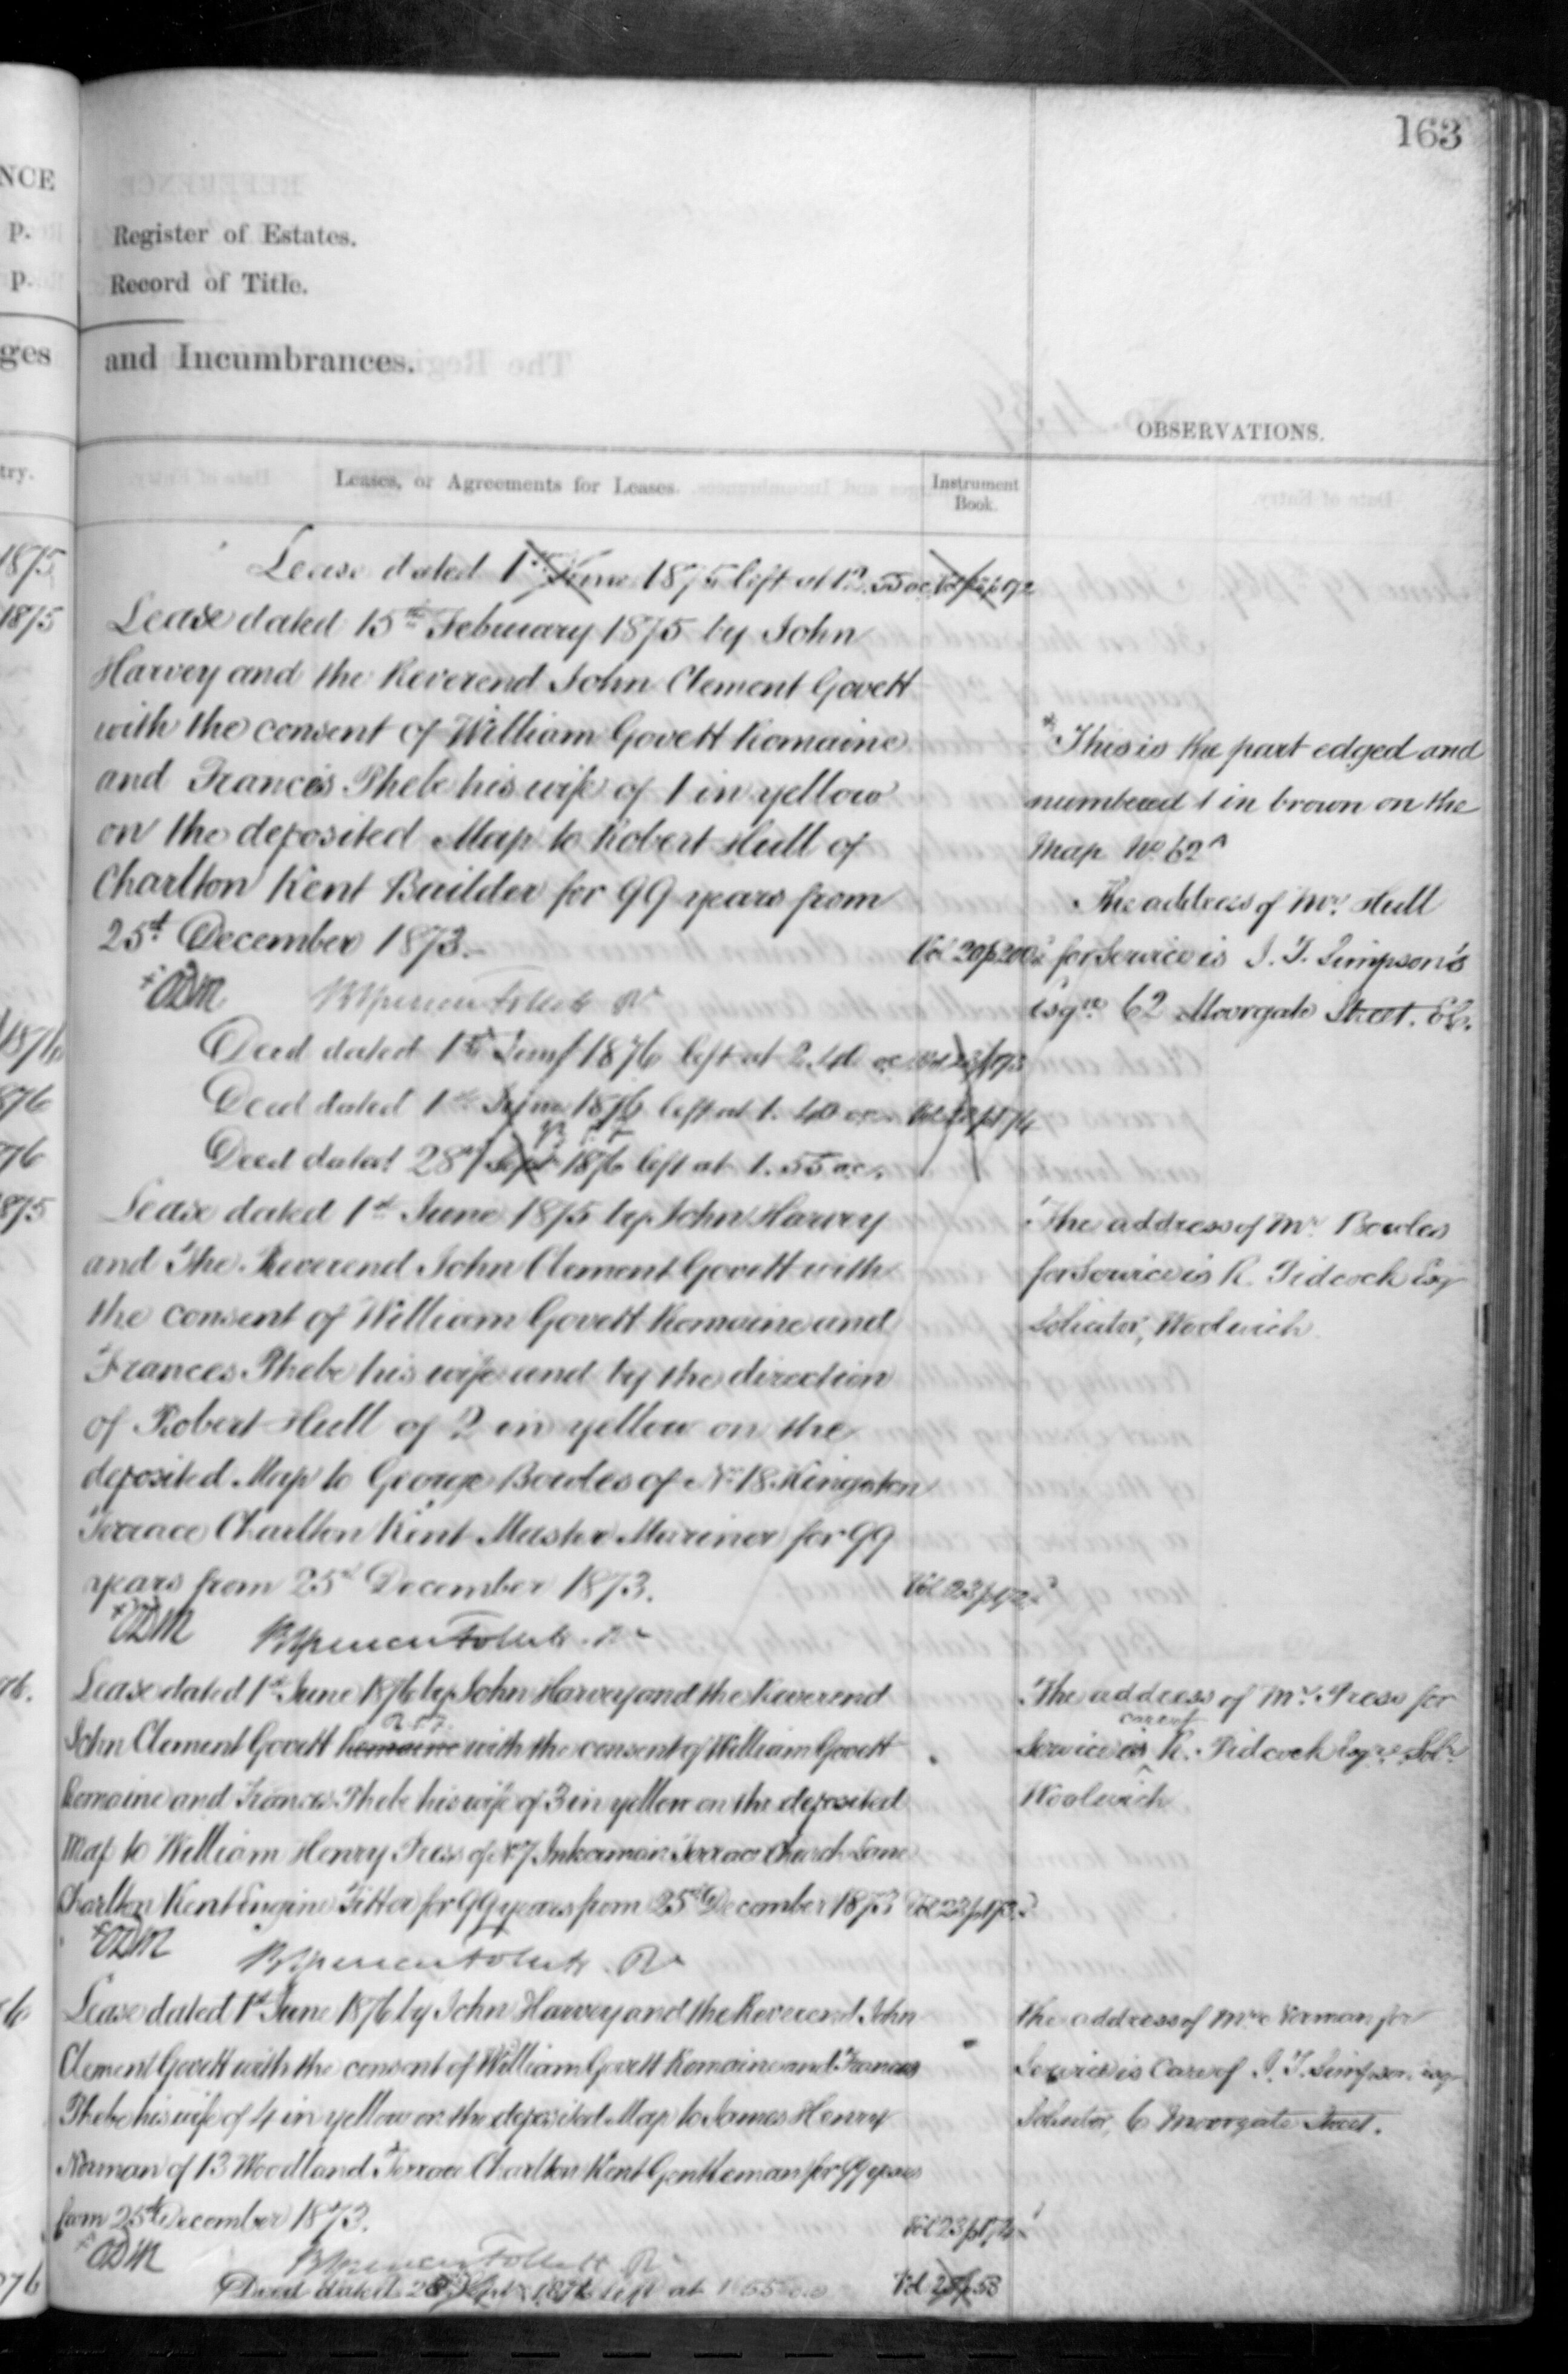 163
NCE
p.
p.
ges
try.
Register of Estates.
Record of Title.
and Incumbrances.
OBSERVATIONS.
Leases, or Agreements for Leases.
Instrument Book.
1875
Lease dated 1st June 1875 left at 12.55 oc. Vol 23 p 172
1875
Lease dated 15th February 1875 by John
Harvey and the Reverend John Clement Govett
with the consent of William Govett Romaine
and Frances Phebe his wife of 1 in yellow
on the deposited Map to Robert Hull of
Charlton Kent Builder for 99 years from
25th December 1873.
Vol 20 p 200
* This is the part edged and
numbered 1 in brown on the
Map No 62A
The address of Mr. Hull
for Service is J. T. Simpson's
Esqre 62 Moorgate Street. EC.
BSpencer Follett Rr
1876
Deed dated 1st June 1876 left at 2.40 oc Vol 23 p 173
876
Deed dated 1st June 1876 left at 1.40 oc Vol 23 p 174
76
Deed dated 28th Sept 1876 left at 1.55 oc.
875
Lease dated 1st June 1875 by John Harvey
and The Reverend John Clement Govett with
the consent of William Govett Romaine and
Frances Phebe his wife and by the direction
of Robert Hull of 2 in yellow on the
deposited Map to George Bowles of No 18 Kingston
Terrace Charlton Kent Master Mariner for 99
years from 25th December 1873.
Vol 23 p 172
The address of Mr Bowles
for Service is R. Pidcock Esq
Solicitor, Woolwich
BSpencer Follett Rr
76.
Lease dated 1st June 1876 by John Harvey and the Reverend
John Clement Govett Romaine with the consent of William Govett
Romaine and Frances Phebe his wife of 3 in yellow on the deposited
Map to William Henry Press of No 7 Inkerman Terrace Church Lane
Charlton Kent Engine Fitter for 99 years from 25th December 1873 Vol 23 p 173
The address of Mr. Press for
care of
Service is R. Pidcock Esqre Solr
Woolwich
BSpencer Follett Rr
6
Lease dated 1st June 1876 by John Harvey and the Reverend John
Clement Govett with the consent of William Govett Romaine and Frances
Phebe his wife of 4 in yellow on the deposited Map to James Henry
Norman of 13 Woodland Terrace Charlton Kent Gentleman for 99 years
from 25th December 1873.
Vol 23 p 174
The address of Mr Norman for
Service is Care of J. T. Simpson Esq
Solicitor, 6 Moorgate Street.
BSpencer Follett Rr
76
Deed dated 28 Sept 1876 left at 1.55 oc
Vol 25 p 58